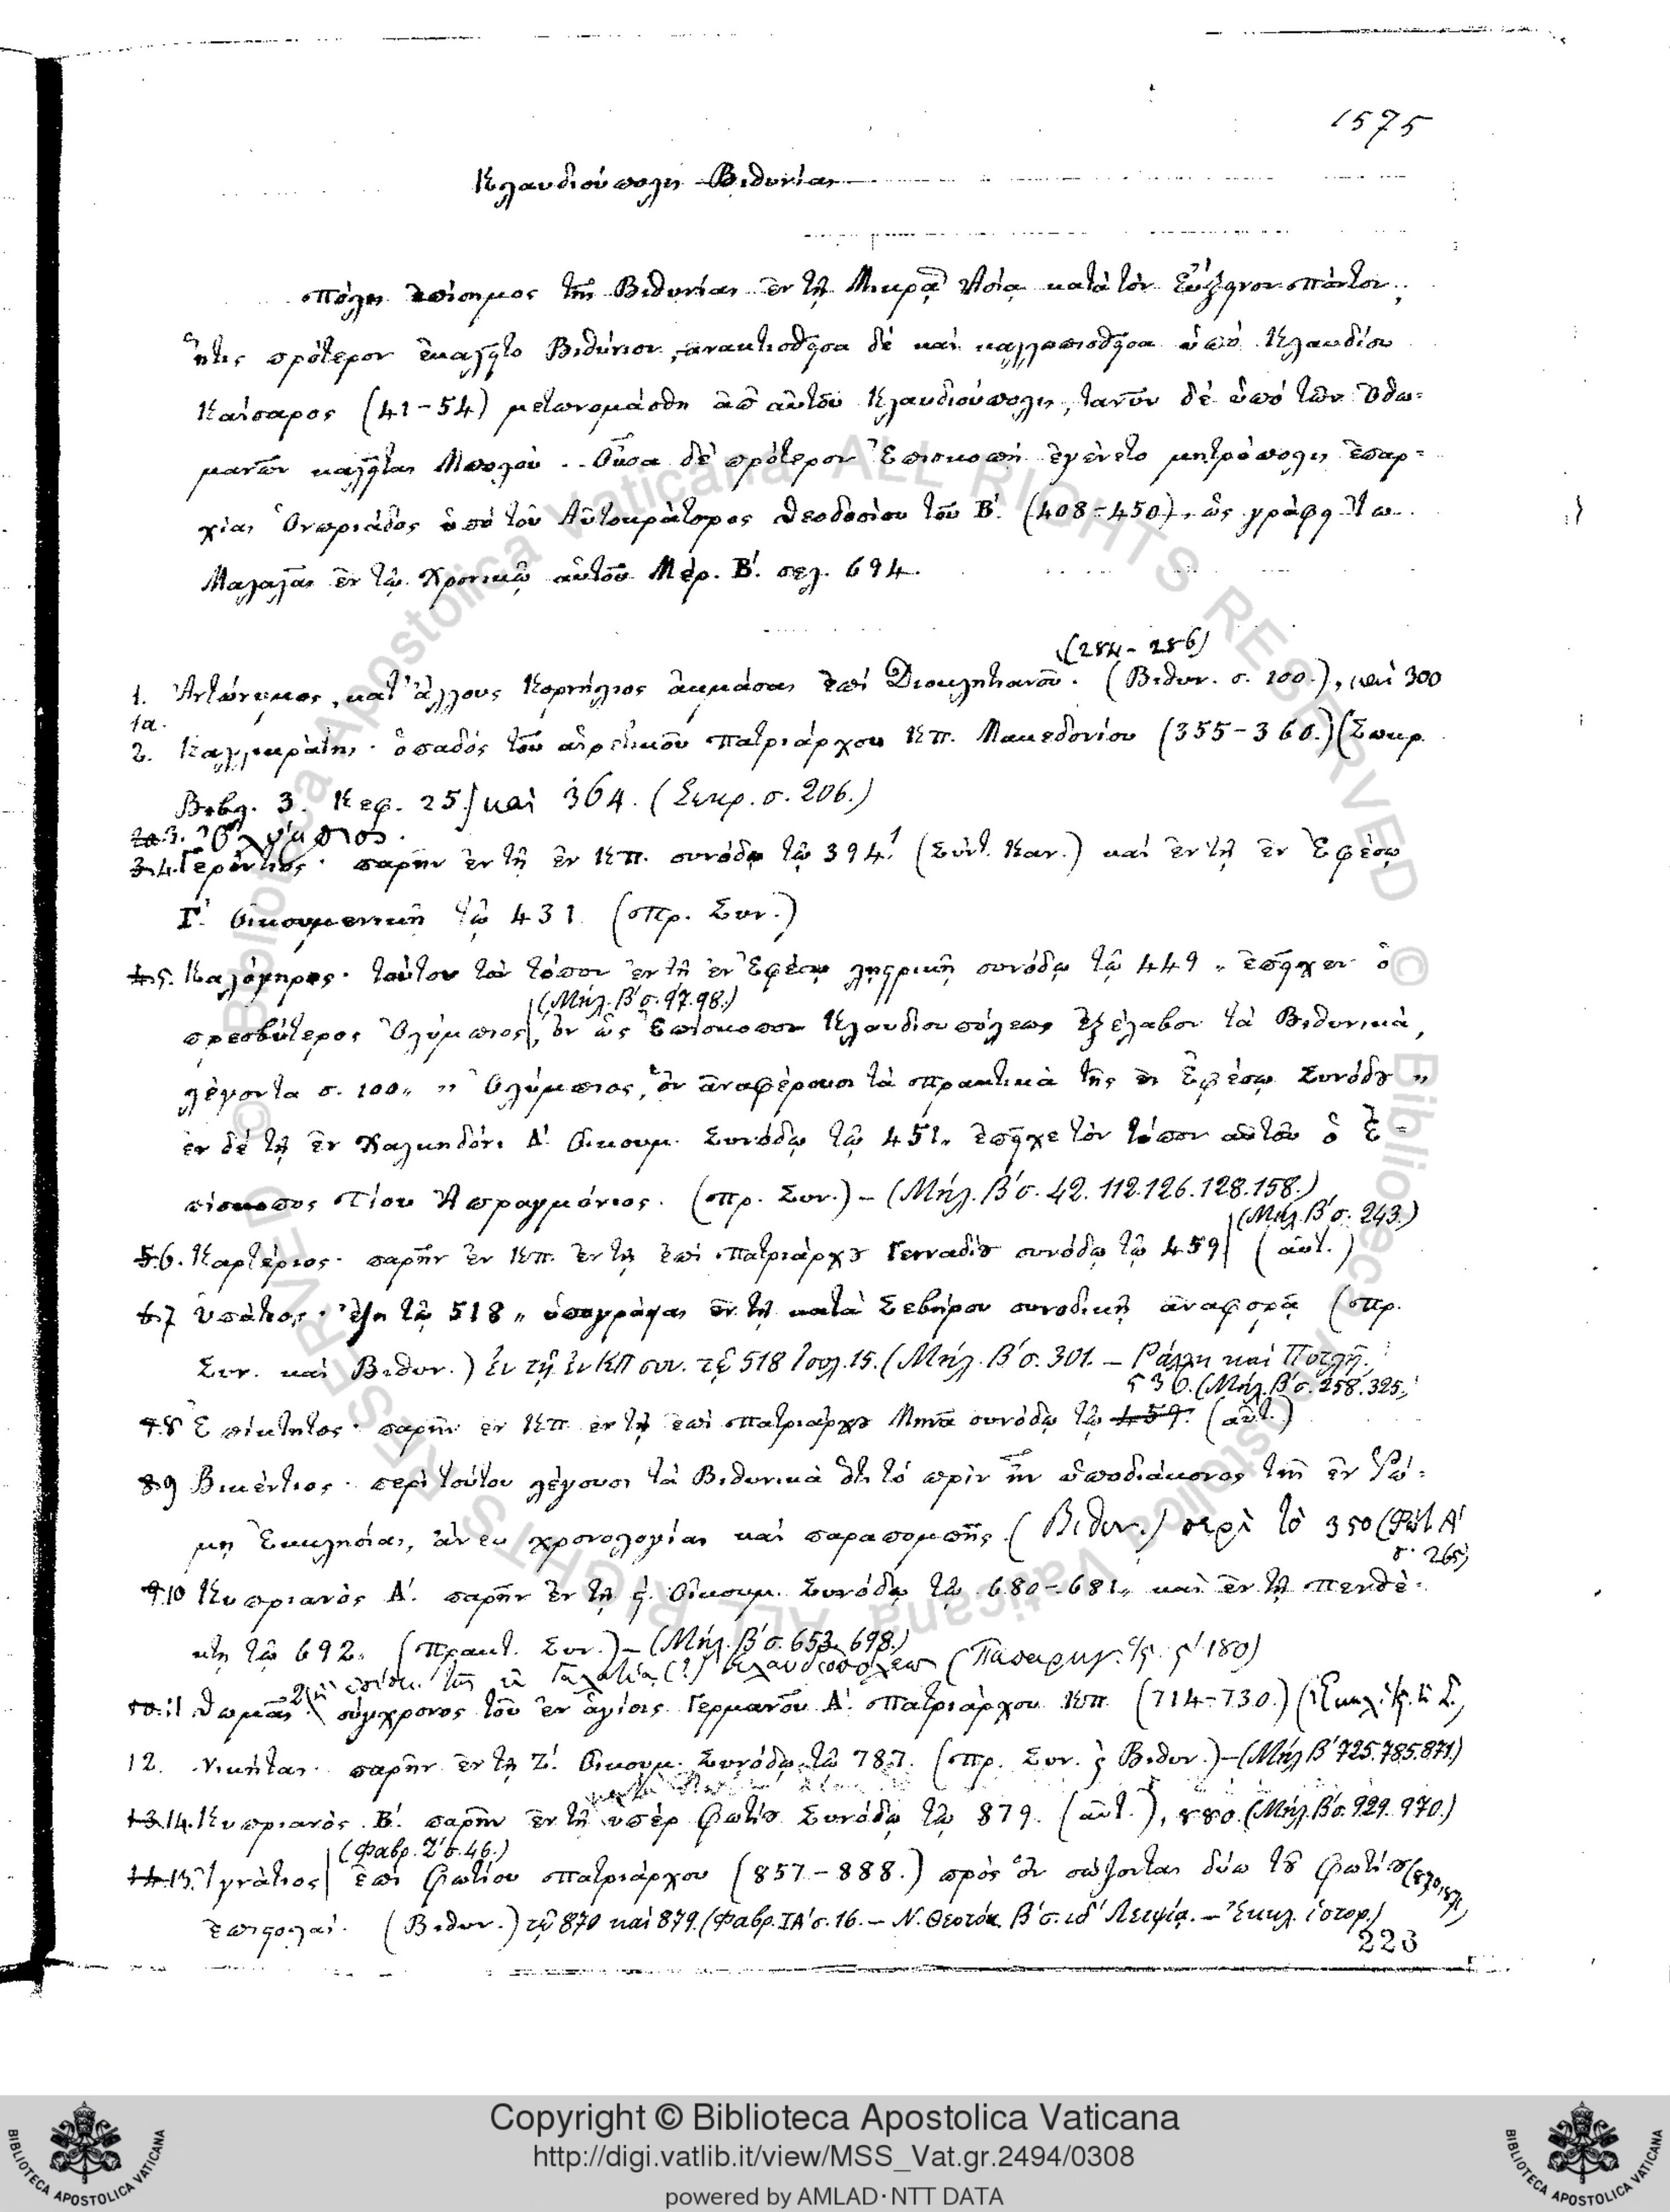 1575
Κλαυδιούπολις Βιθυνίας
Πόλις ἐπίσημος τῆς Βιθυνίας ἐν τῇ Μικρᾷ Ἀσίᾳ κατὰ τὸν Εὔξεινον πόντον,
ἥτις πρότερον ἐκαλεῖτο Βιθύνιον, ἀνακτισθεῖσα δὲ καὶ καλλωπισθεῖσα ὑπὸ Κλαυδίου
Καίσαρος (41-54) μετωνομάσθη ἀπ' αὐτοῦ Κλαυδιούπολις, τανῦν δὲ ὑπὸ τῶν Ὀθω-
μανῶν καλεῖται Μπολοῦ. Οὖσα δὲ πρότερον Ἐπισκοπὴ ἐγένετο μητρόπολις ἐπαρ-
χίας Ὀνωριάδος ὑπὸ τοῦ Αὐτοκράτορος Θεοδοσίου τοῦ Β΄. (408-450), ὡς γράφει Ἰω.
Μαλαλᾶς ἐν τῷ Χρονικῷ αὐτοῦ Μέρ. Β΄. σελ. 694.
(284-286)
1. Ἀντώνυμος, κατ' ἄλλους Κορνήλιος ἀκμάσας ἐπὶ Διοκλητιανοῦ. (Βιθυν. σ. 100.), καὶ 300
1α.
2. Καλλικράτης· ὀπαδὸς τοῦ αἱρετικοῦ Πατριάρχου Κπ. Μακεδονίου (355-360.) (Σωκρ.
Βιβλ. 3. Κεφ. 25.) καὶ 364. (Σωκρ. σ. 206.)
2α. 3. Ὀλύμπιος.
3. 4. Γερόντιος· παρῆν ἐν τῇ ἐν Κπ. συνόδῳ τῷ 394. (Σύντ. Καν.) καὶ ἐν τῇ ἐν Ἐφέσῳ
Γ΄. Οἰκουμενικῇ τῷ 431. (Πρ. Συν.)
4. 5. Καλόγηρος· τούτου τὸν τόπον ἐν τῇ ἐν Ἐφέσῳ λῃστρικῇ συνόδῳ τῷ 449 „ ἐπεῖχεν ὁ
(Μήλ. Β΄ σ. 97. 98.)
πρεσβύτερος Ὀλύμπιος, ὃν ὡς Ἐπίσκοπον Κλαυδιουπόλεως ἐξέλαβον τὰ Βιθυνικὰ,
λέγοντα σ. 100„ „ Ὀλύμπιος, ὃν ἀναφέρουσι τὰ πρακτικὰ τῆς ἐν Ἐφέσῳ Συνόδου „
ἐν δὲ τῇ ἐν Χαλκηδόνι Δ΄. Οἰκουμ. Συνόδῳ τῷ 451„ ἐπεῖχε τὸν τόπον αὐτοῦ ὁ Ἐ-
πίσκοπος Τίου Ἀπραγμόνιος. (Πρ. Συν.) – (Μήλ. Β΄ σ. 42. 112. 126. 128. 158.)
(Μήλ. Β΄ σ. 243.)
5. 6. Καρτέριος· παρῆν ἐν Κπ. ἐν τῇ ἐπὶ Πατριάρχου Γενναδίου συνόδῳ τῷ 459 (αὐτ.)
6. 7 Ὑπάτιος· ἔζη τῷ 518 „ ὑπογράψας ἐν τῇ κατὰ Σεβήρου συνοδικῇ ἀναφορᾷ (Πρ.
Συν. καὶ Βιθυν.) ἐν τῇ ἐν ΚΠ συν. τῷ 518 Ἰουλ. 15. (Μήλ. Β΄ σ. 301. – Ράλλη καὶ Ποτλῆ.
536. (Μήλ. Β΄ σ. 258. 325.
7. 8 Ἐπίκτητος· παρῆν ἐν Κπ. ἐν τῇ ἐπὶ Πατριάρχου Μηνᾶ συνόδῳ τῷ 459. (αὐτ.)
8. 9 Βικέντιος· περὶ τούτου λέγουσι τὰ Βιθυνικὰ ὅτι τὸ πρὶν ἦν ὑποδιάκονος τῆς ἐν Ῥώ-
μῃ Ἐκκλησίας, ἄνευ χρονολογίας καὶ παραπομπῆς. (Βιθυν.) περὶ τὸ 350 (Φώτ. Α΄
σ. 265)
9. 10 Κυπριανὸς Α΄. παρῆν ἐν τῇ ϛ΄. Οἰκουμ. Συνόδῳ τῷ 680-681„ καὶ ἐν τῇ πενθέ-
κτῃ τῷ 692. (Πρακτ. Συν.) – (Μήλ. Β΄ σ. 653. 698.)
Γαλατίας (?) Κλαυδιοπόλεως 180)
10. 11 Θωμᾶς· σύγχρονος τοῦ ἐν ἁγίοις Γερμανοῦ Α΄. Πατριάρχου Κπ. (714-730.)
12. Νικήτας· παρῆν ἐν τῇ Ζ΄. Οἰκουμ. Συνόδῳ τῷ 787. (Πρ. Συν. ϗ Βιθυν.) – (Μήλ. Β΄ 725. 785. 871.)
13. 14. Κυπριανὸς Β΄. παρῆν ἐν τῇ ὑπὲρ Φωτίου Συνόδῳ τῷ 879. (αὐτ.), 880. (Μήλ. Β΄ σ. 929. 970.)
(Φαβρ. Ζ΄ σ. 46.)
14. 13. Ἰγνάτιος ἐπὶ Φωτίου Πατριάρχου (857-888.) πρὸς ὃν σώζονται δύω τοῦ Φωτίου
ἐπιστολαί. (Βιθυν.) τῷ 870 καὶ 879. (Φαβρ. ΙΑ΄ σ. 16. – Ν. Θεοτόκ. Β΄ σ. ιδ΄ Λειψίᾳ. – Ἐκκλ. ἱστορ.)
223
Copyright © Biblioteca Apostolica Vaticana
http://digi.vatlib.it/view/MSS_Vat.gr.2494/0308
powered by AMLAD·NTT DATA
BIBLIOTECA APOSTOLICA VATICANA
BIBLIOTECA APOSTOLICA VATICANA